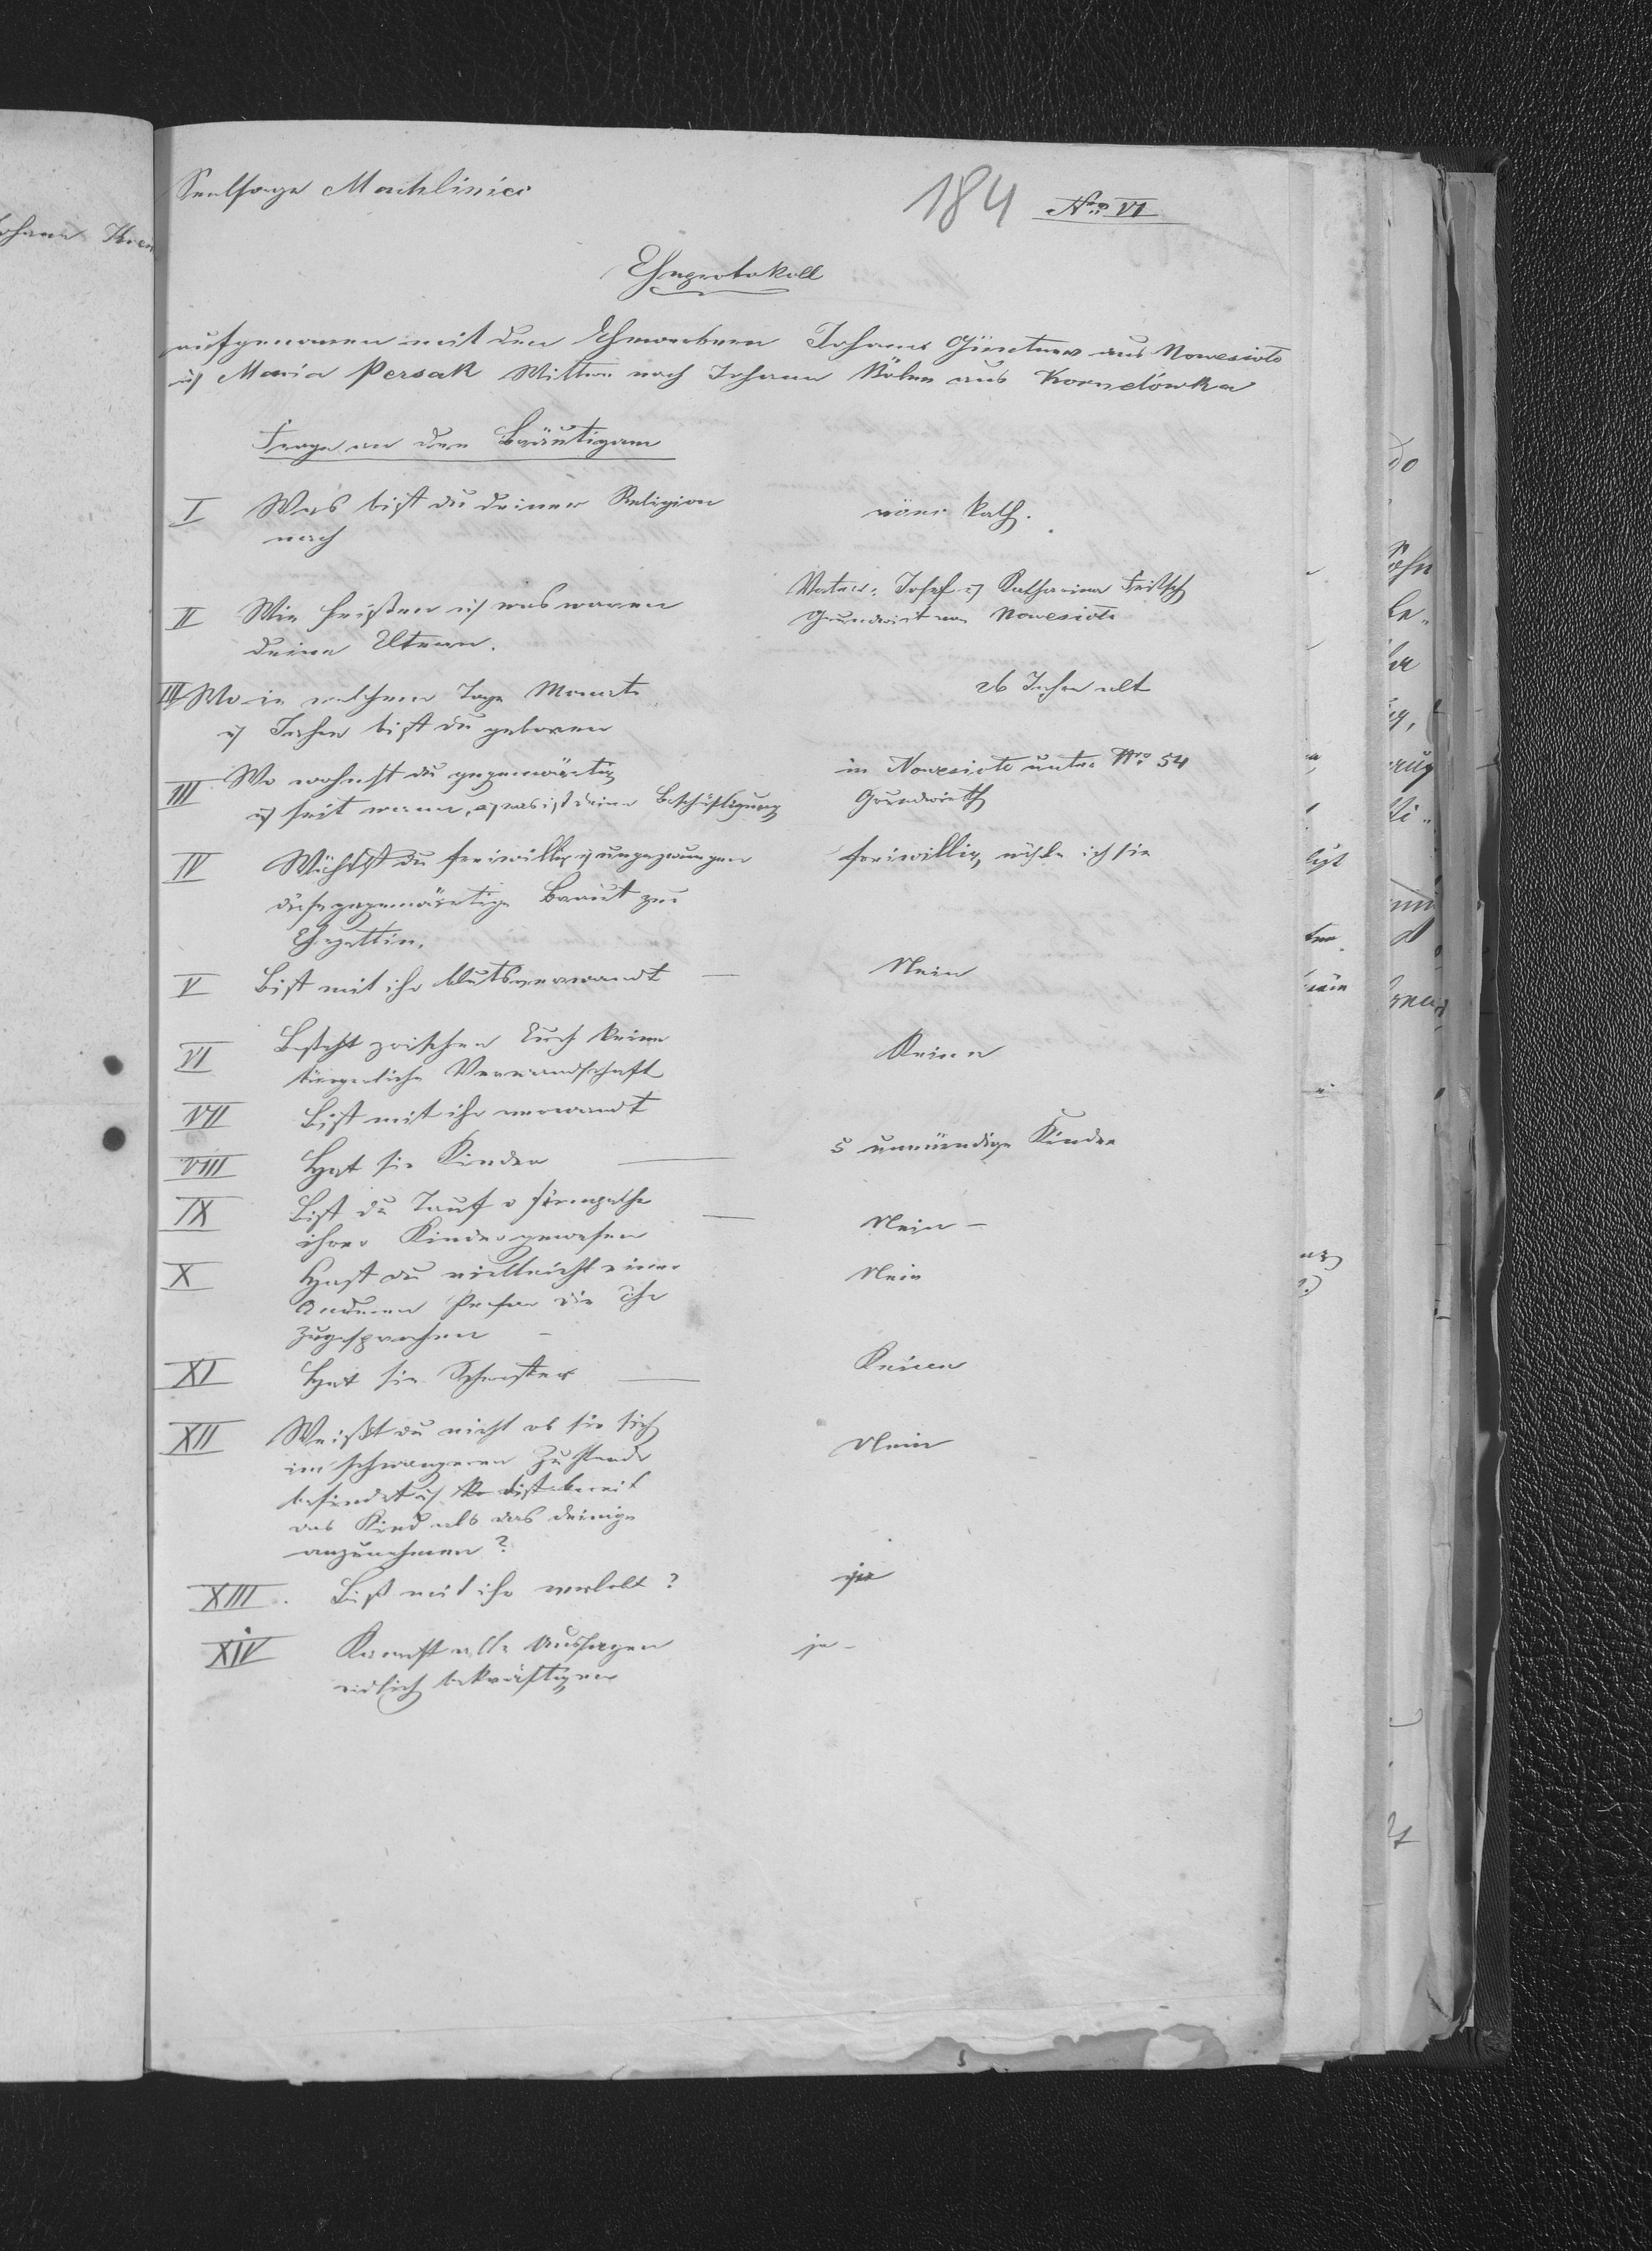 Seelsorge Machliniec
184 Nro VI
Eheprotokoll
aufgenommen mit den Ehewerbern Johann Güntner aus Nowesioło
u Maria Persak Wittwe nach Johann Böhm aus Kornelówka
Frage an den Bräutigam
I Was bist du deiner Religion
nach
röm: kath.
II Wie heißen u was waren
deine Eltern.
Vater: Josef u Katharina Fritsch
Grundwirt von Nowesioło
III Wo in welchem Tage Monate
u Jahre bist du geboren
26 Jahre alt
III Wo wohnst du gegenwärtig
u seit wann, u was ist deine Beschäftigung
in Nowesioło unter Nro 54
Grundwirth
IV Wählst du freiwillig u ungezwungen
diese gegenwärtige Braut zur
Ehegattin.
freiwillig, wähle ich sie
V Bist mit ihr blutsverwandt —
Nein
VI Besteht zwischen Euch keine
bürgerliche Verwandschaft
Keine
VII Bist mit ihr verwandt
VIII Hat sie Kinder —
5 unmündige Kinder
IX Bist du Tauf o firmpathe
ihrer Kinder gewesen —
Nein —
X Hast du vielleicht einer
Anderen Person die Ehe
zugesprochen —
Nein
XI Hat sie Schwester —
Keine
XII Weißt du nicht ob sie sich
im schwangeren Zustande
befindet u bist bereit
das Kind als das deinige
anzunehmen?
Nein
XIII. Bist mit ihr verlobt?
ja
XIV Kannst alle Aussagen
eidlich bekräftigen
ja —